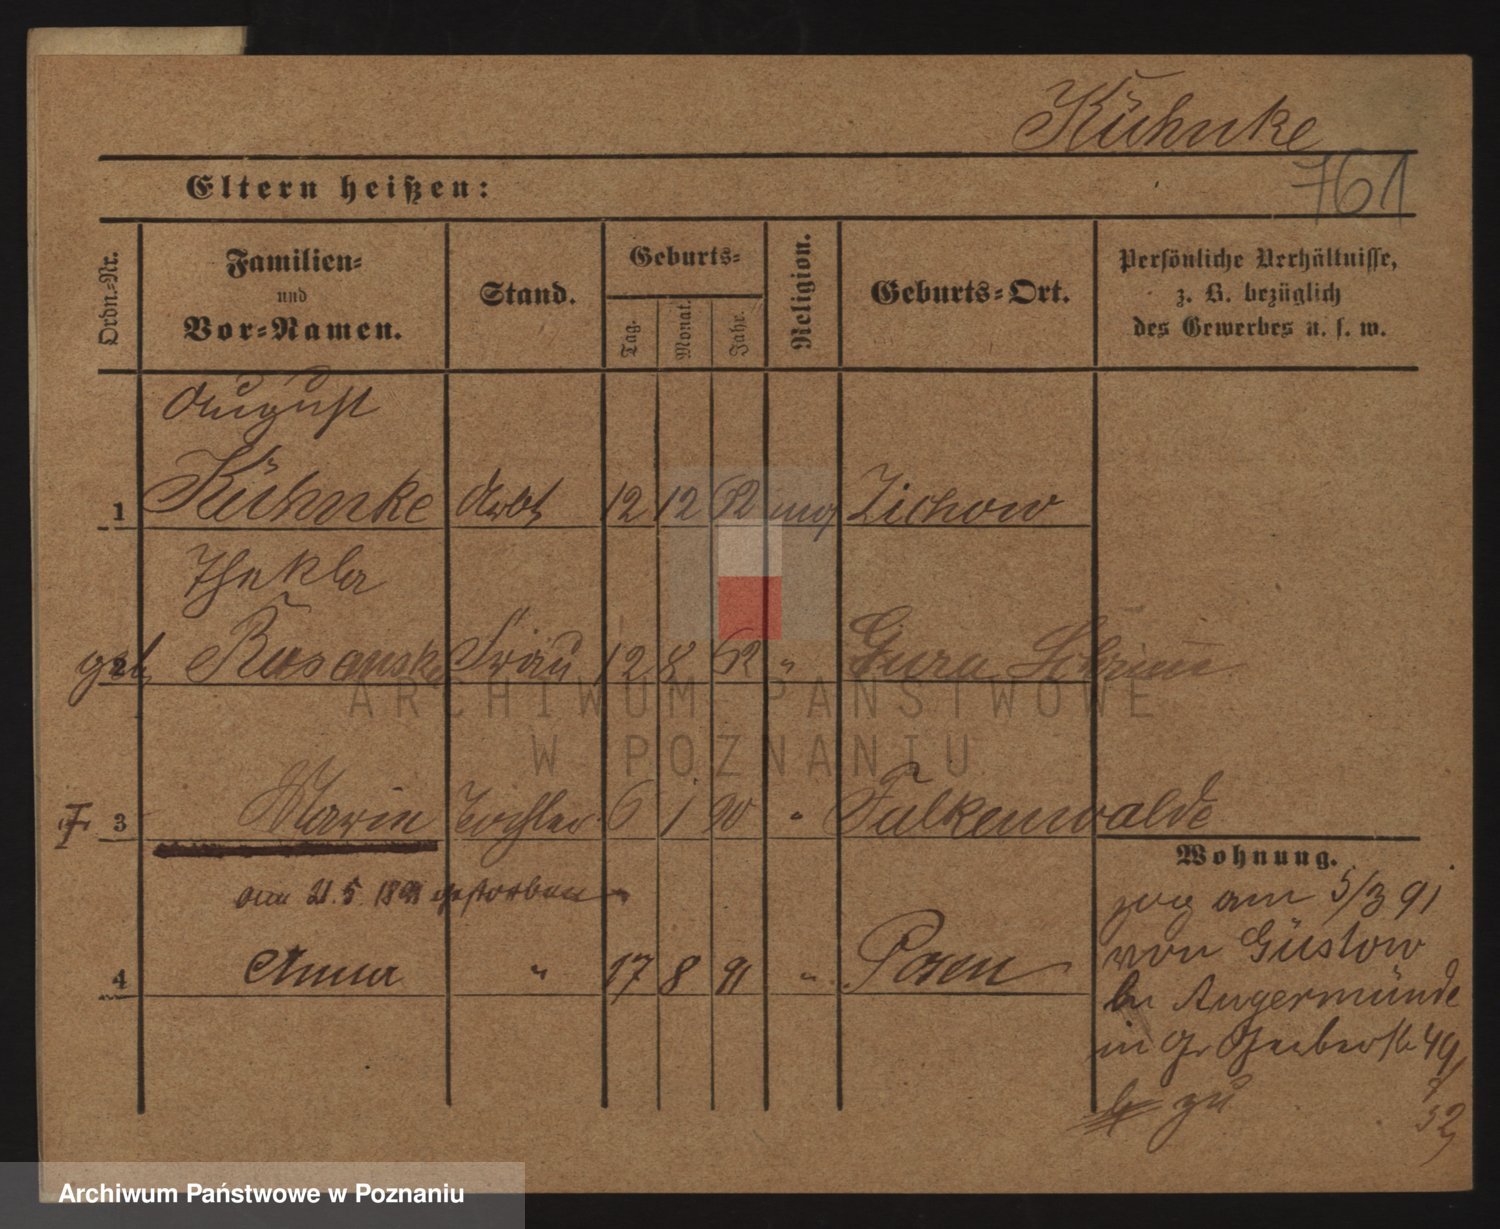 Kühnke
761
Eltern heißen:
Ordn.-Nr.
Familien-
und
Vor-Namen.
Stand.
Geburts-
Tag.
Monat.
Jahr.
Religion.
Geburts-Ort.
Persönliche Verhältnisse,
z. B. bezüglich
des Gewerbes u. s. w.
August
1 Kühnke Arbt 12 12 62 Zichow
Thekla
geb Frau 12 8 62 " Gura Schrimm
3 Marie Tochter 6 1 90 " Falkenwalde
am 21.5 1891 gestorben
4 Anna " 17 8 91 " Posen
Wohnung.
zog am 5/3 91
von Güstow
bei Angermünde
in Gr Gerberstr 49
zu
52
ARCHIWUM PAŃSTWOWE
W POZNANIU
Archiwum Państwowe w Poznaniu